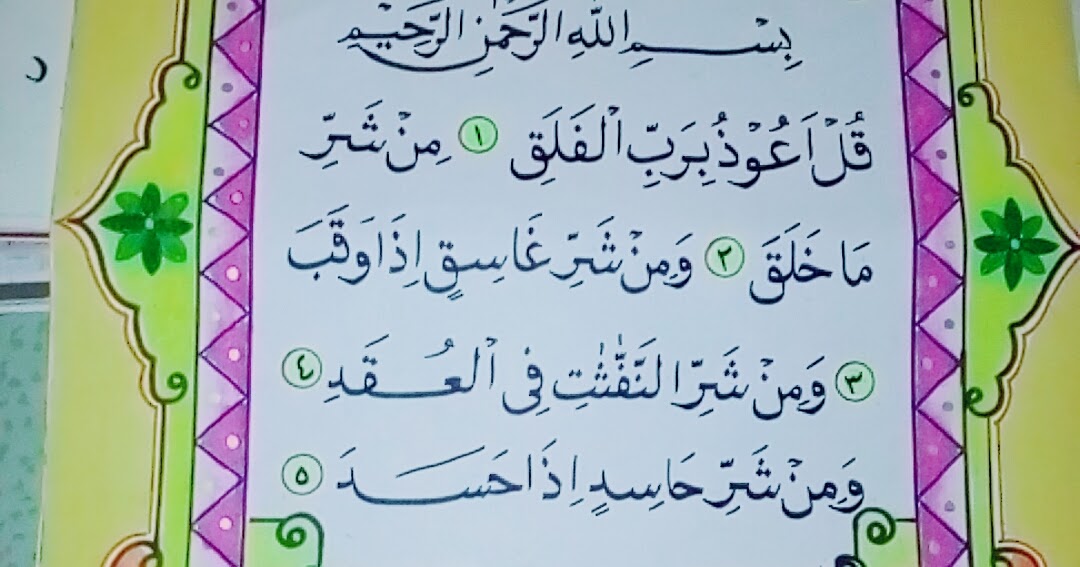 بِسْمِ اللّٰهِ الرَّحْمٰنِ الرَّحِيْمِ
قُلْ اَعُوْذُ بِرَبِّ الْفَلَقِ ١ مِنْ شَرِّ
مَا خَلَقَ ٢ وَمِنْ شَرِّ غَاسِقٍ اِذَا وَقَبَ
٣ وَمِنْ شَرِّ النَّفّٰثٰتِ فِى الْعُقَدِ ٤
وَمِنْ شَرِّ حَاسِدٍ اِذَا حَسَدَ ٥